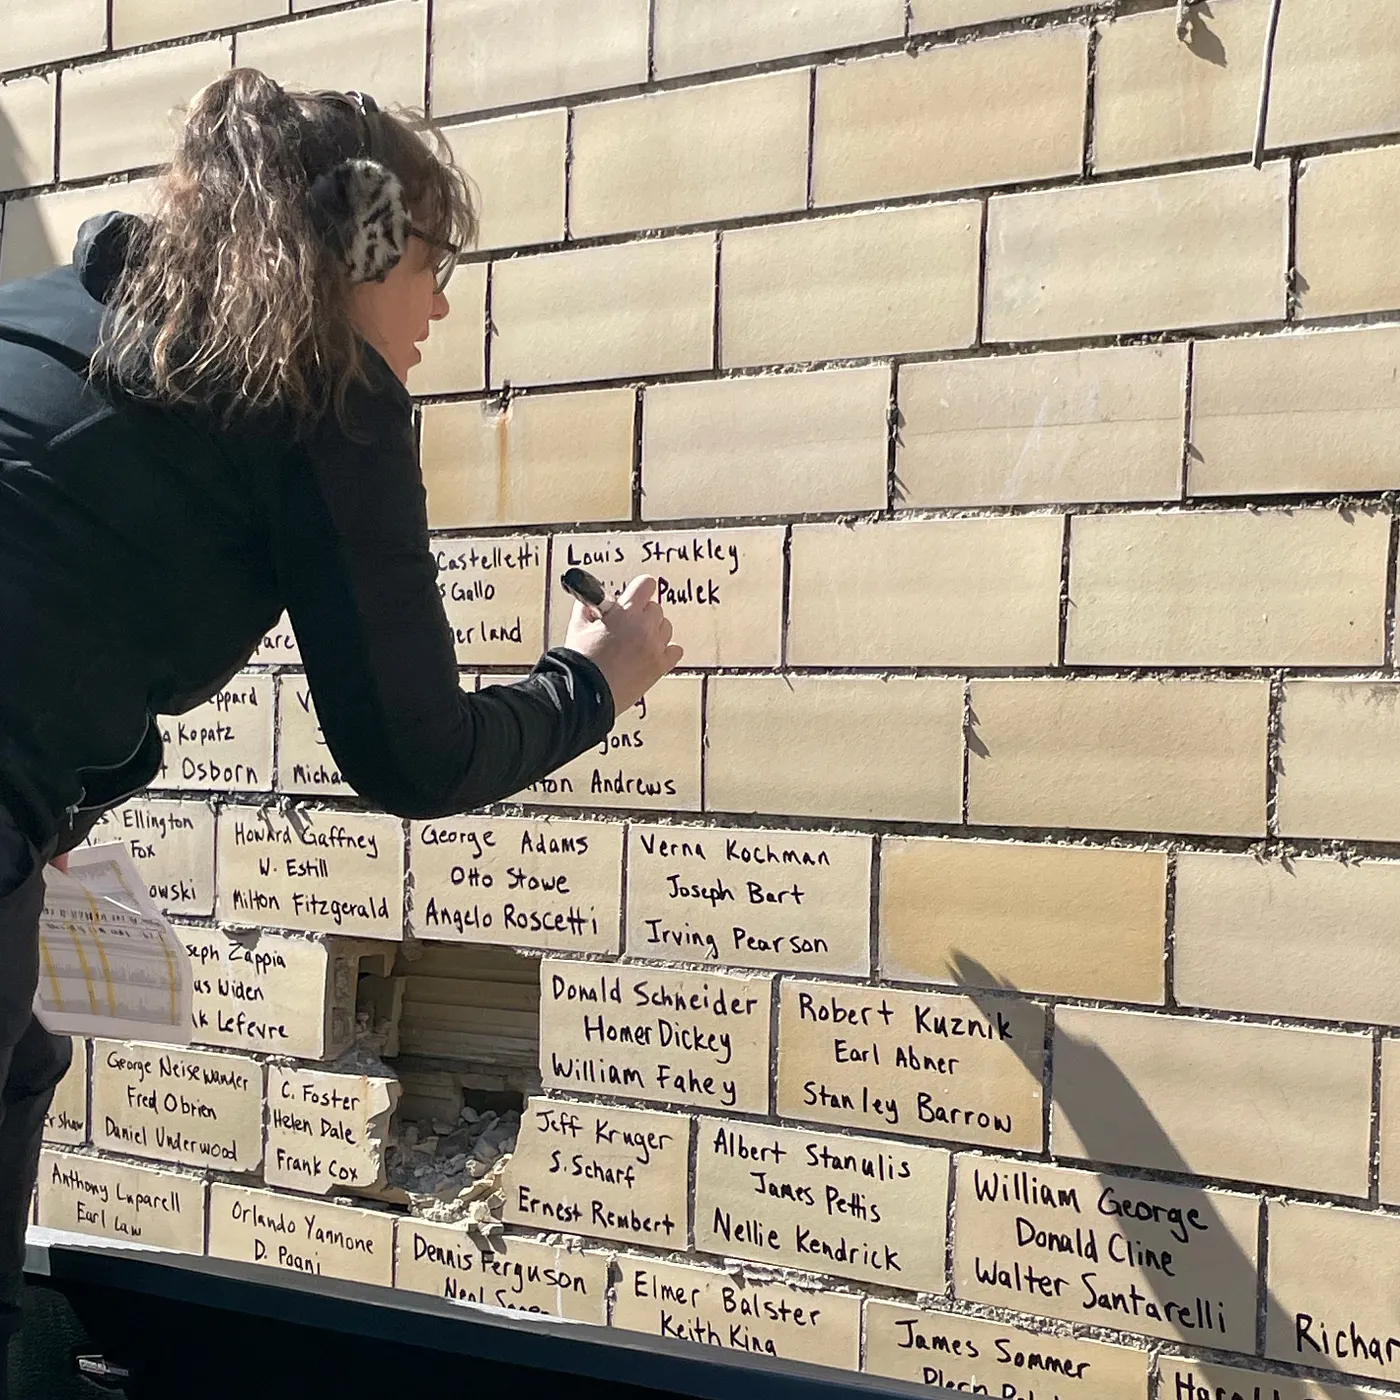 Castelletti
Gallo
Louis Strukley
Paulek
Kopatz
Osborn
Andrews
Ellington
Fox
Howard Gaffney
W. Estill
Milton Fitzgerald
George Adams
Otto Stowe
Angelo Roscetti
Verna Kochman
Joseph Bart
Irving Pearson
Zappia
Widen
Lefevre
Donald Schneider
Homer Dickey
William Fahey
Robert Kuznik
Earl Abner
Stanley Barrow
George Neisewander
Fred Obrien
Daniel Underwood
C. Foster
Helen Dale
Frank Cox
Jeff Kruger
S. Scharf
Ernest Rembert
Albert Stanulis
James Pettis
Nellie Kendrick
William George
Donald Cline
Walter Santarelli
Anthony Luparell
Earl Law
Orlando Yannone
D. Paani
Dennis Ferguson
Neal
Elmer Balster
Keith King
James Sommer